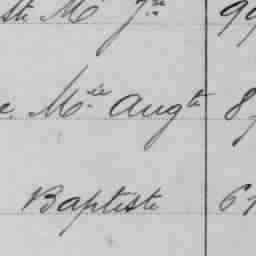 ste Mce Jne 99
e. Mce Augte 8
Baptiste 61